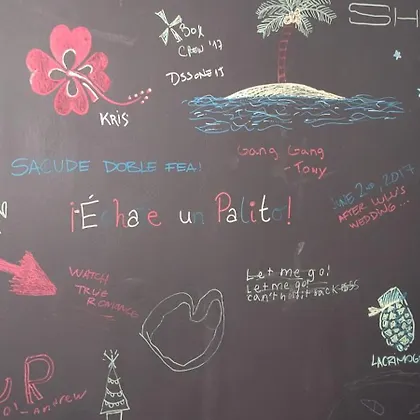 BOK
CREW '17
DSSONE15
SH
KRIS
SACUDE DOBLE FEA!
Gang Gang
- Tony
JUNE 20, 2017
AFTER LULU'S
WEDDING...
¡Échale un Palito!
WATCH
TRUE
ROMANCE
Let me go!
Let me go!
can't hold it back
LACRIMOG
UR
- ANDREW